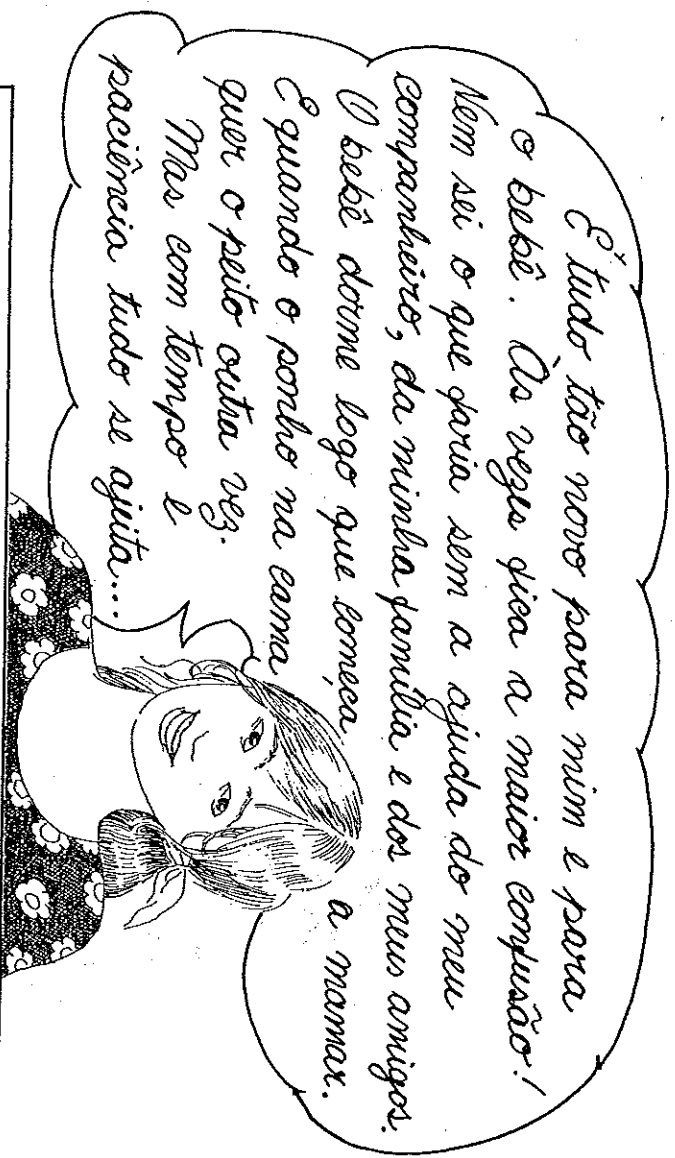 É tudo tão novo para mim e para
o bebê. Às vezes fica a maior confusão!
Nem sei o que faria sem a ajuda do meu
companheiro, da minha família e dos meus amigos.
O bebê dorme logo que começa a mamar.
E quando o ponho na cama
quer o peito outra vez.
Mas com tempo e
paciência tudo se ajeita...